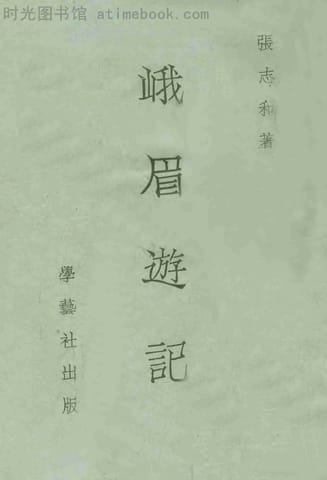 时光图书馆 - atimebook.com
張志和著
峨眉遊記
學藝社出版